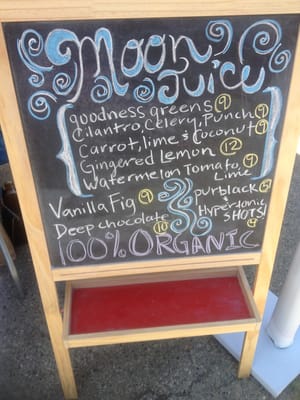 Moon
Juice
goodness greens 9
Cilantro, Celery, Punch 9
Carrot, lime & Coconut 9
Gingered lemon 12
Watermelon Tomato 9
Lime
Vanilla Fig 9
Deep chocolate 10
purblack 5
& Hypertonic
SHOTS! 4
100% ORGANIC